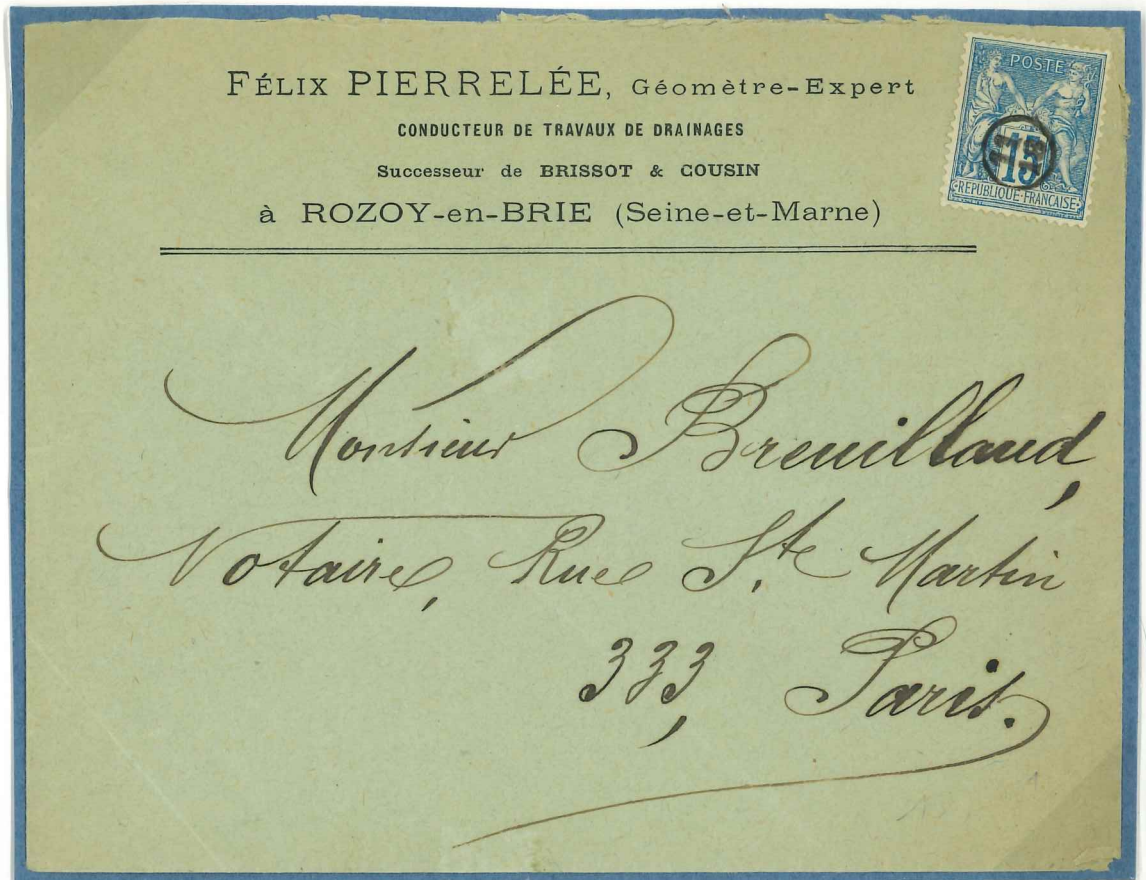 FÉLIX PIERRELÉE, Géomètre-Expert
CONDUCTEUR DE TRAVAUX DE DRAINAGES
Successeur de BRISSOT & COUSIN
à ROZOY-en-BRIE (Seine-et-Marne)
POSTE
15
REPUBLIQUE FRANÇAISE
Monsieur Breuillaud,
Notaire, Rue Ste Martin
333, Paris.